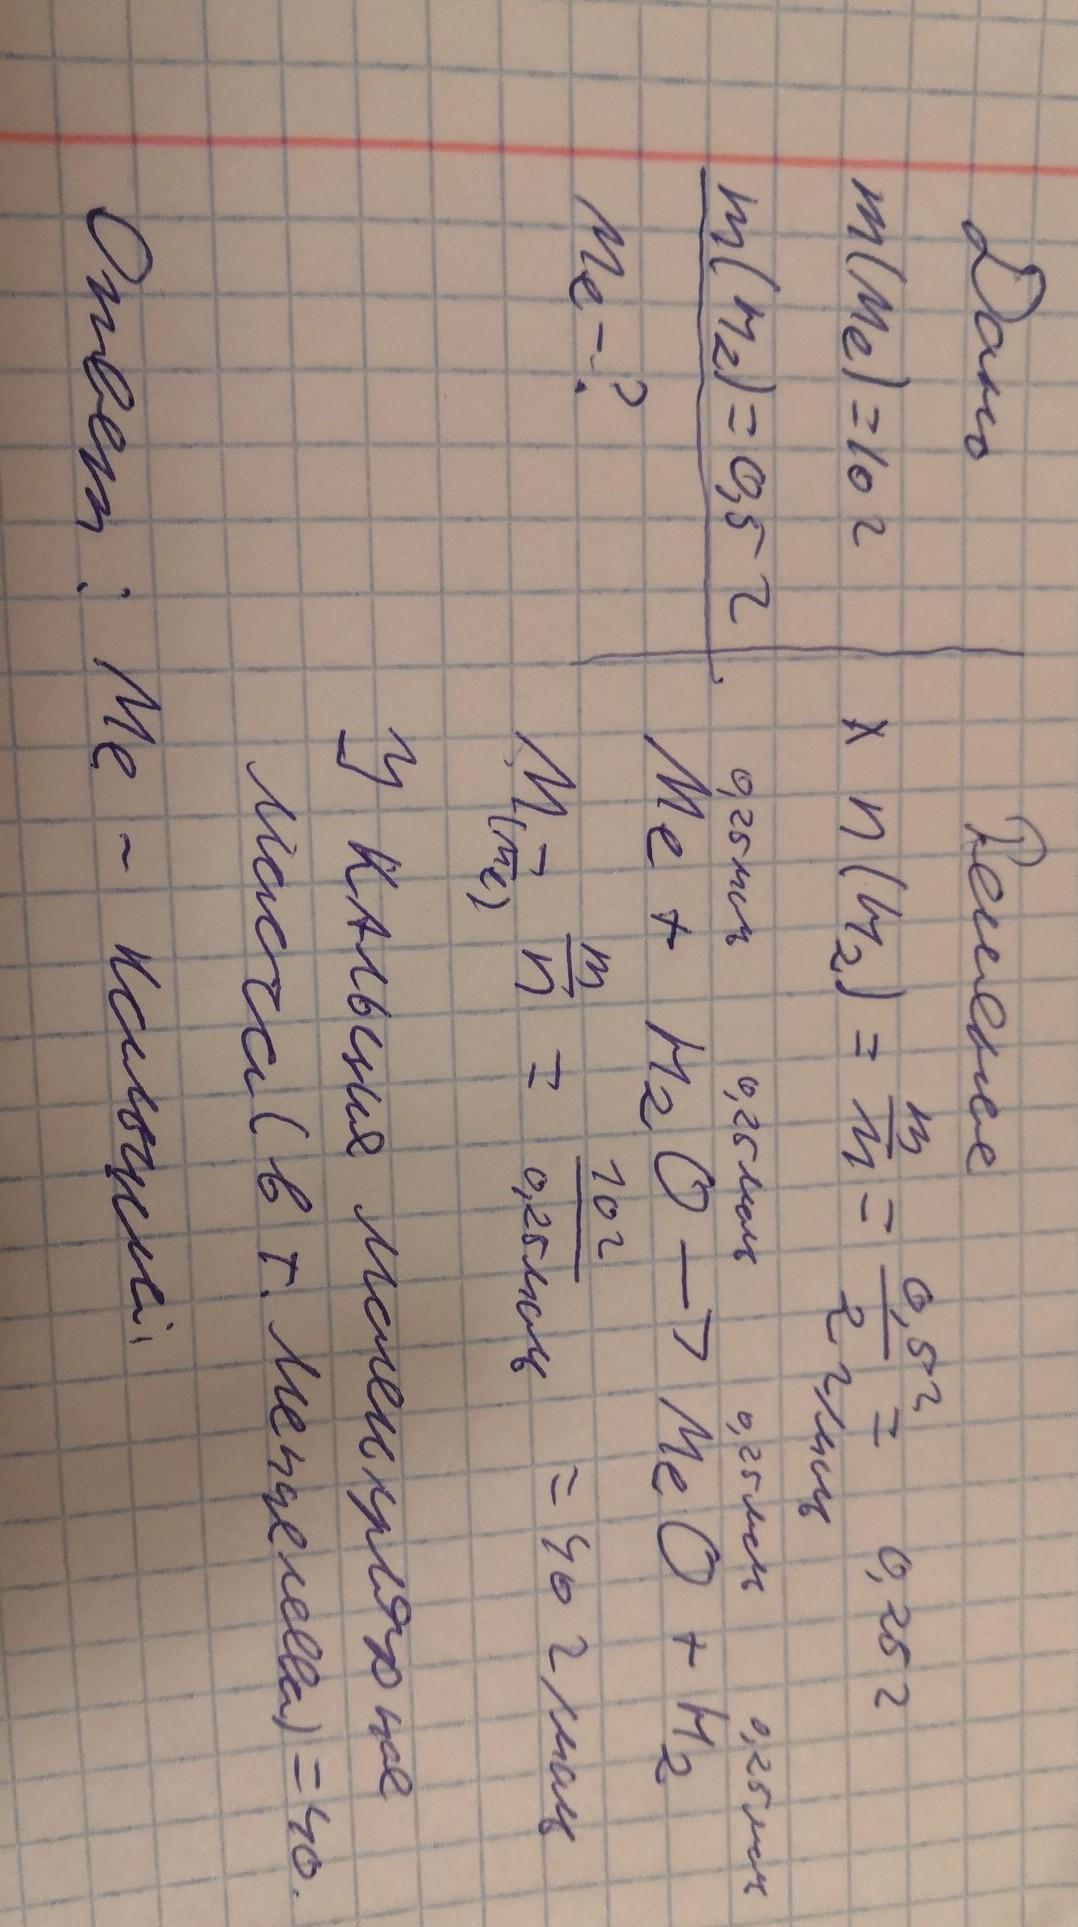 Дано
m(Me)=10 г
m(H2)=0,5 г
Me-?
Решение
x n(H2) = m/M = 0,5г/2 г/моль = 0,25 г
0,25моль 0,25моль 0,25моль 0,25моль
Me + H2O → MeO + H2
M(Me) = m/n = 10г/0,25моль = 40 г/моль
У Кальция молекулярная
масса (в т. Менделеева) = 40.
Ответ: Me - Кальций